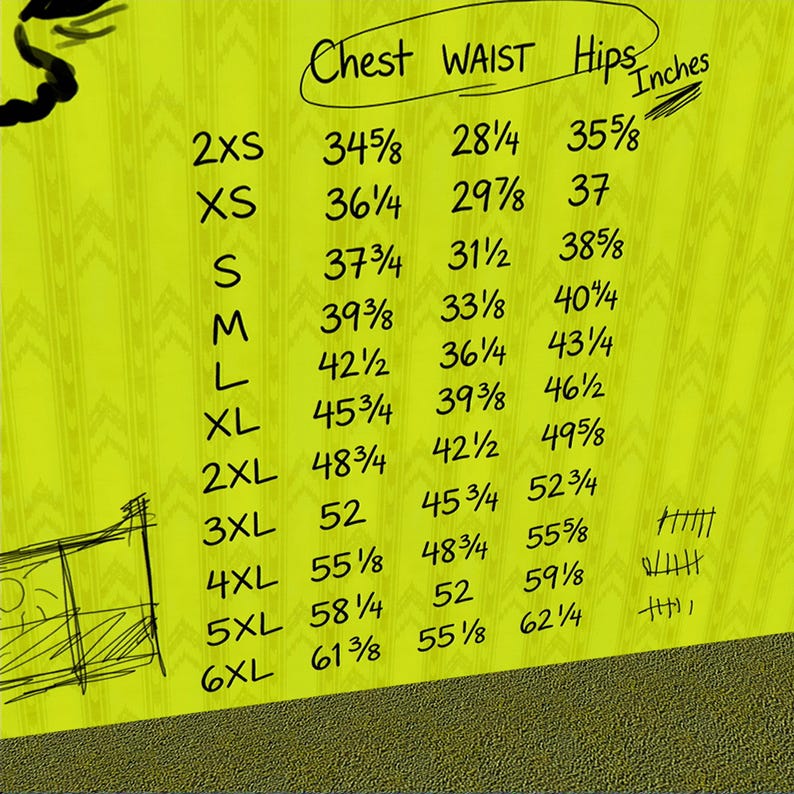 Chest WAIST Hips
Inches
2XS 34 5/8 28 1/4 35 5/8
XS 36 1/4 29 7/8 37
S 37 3/4 31 1/2 38 5/8
M 39 3/8 33 1/8 40 4/4
L 42 1/2 36 1/4 43 1/4
XL 45 3/4 39 3/8 46 1/2
2XL 48 3/4 42 1/2 49 5/8
3XL 52 45 3/4 52 3/4
4XL 55 1/8 48 3/4 55 5/8
5XL 58 1/4 52 59 1/8
6XL 61 3/8 55 1/8 62 1/4